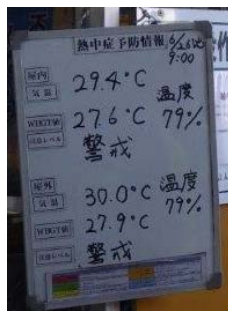 熱中症予防情報
9:00
屋内
気温
29.4°C
温度
WBGT値
27.6°C
79%
注意レベル
警戒
屋外
気温
30.0°C
温度
79%
WBGT値
27.9°C
注意レベル
警戒